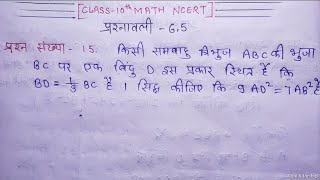 [CLASS-10th MATH NCERT]
प्रश्नावली - 6.5
प्रश्न संख्या - 15. किसी समबाहु त्रिभुज ABC की भुजा
BC पर एक बिंदु D इस प्रकार स्थित है कि
BD = 1/3 BC है । सिद्ध कीजिए कि 9 AD² = 7 AB² है